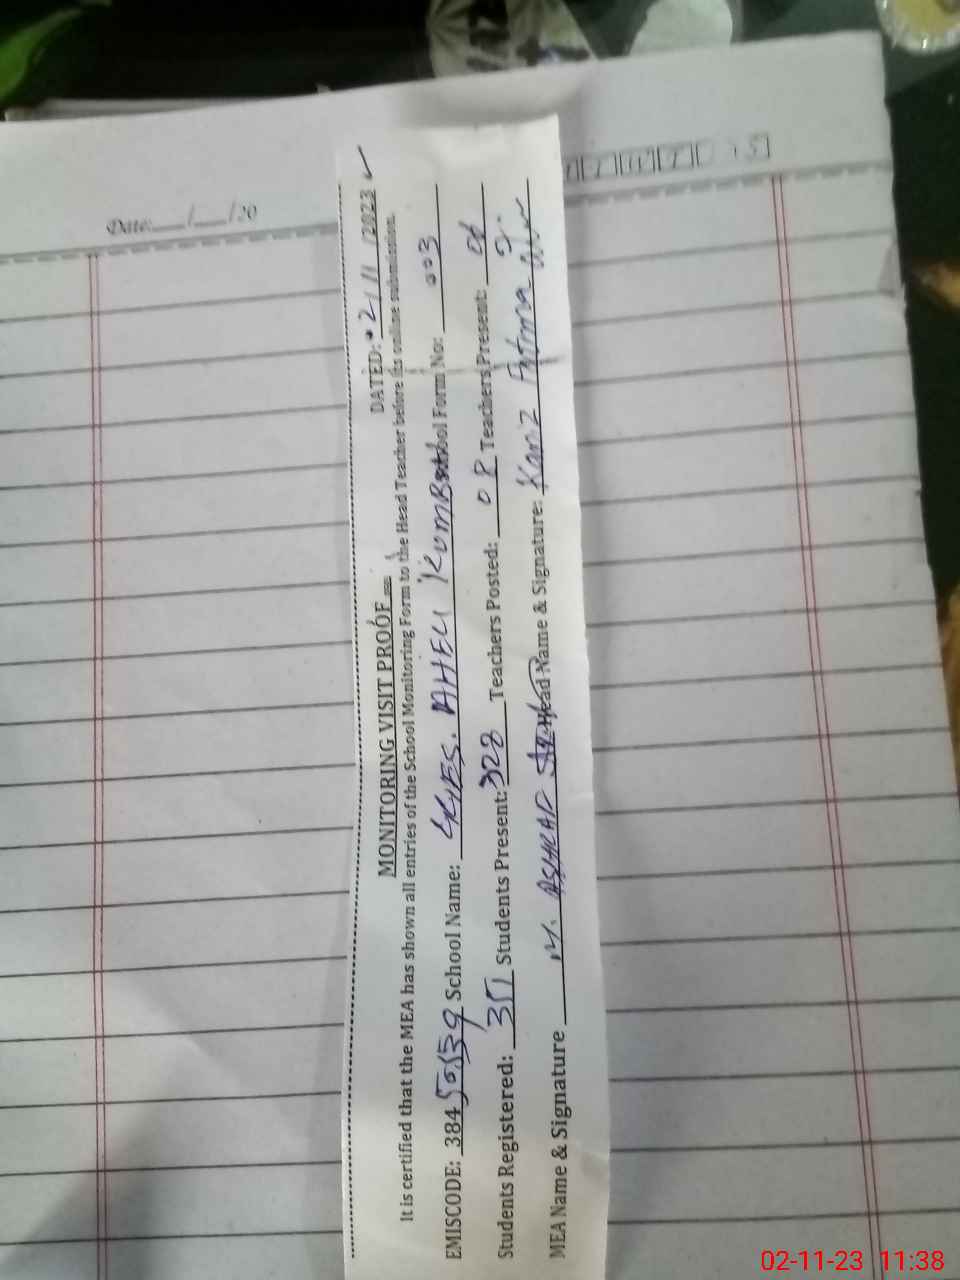 Date:___/___/20
MONITORING VISIT PROOF
DATED: 2/11/2023
It is certified that the MEA has shown all entries of the School Monitoring Form to the Head Teacher before its online submission.
EMISCODE: 384 School Name: AHELI Form No: 003
Students Registered: Students Present: 328 Teachers Posted: Teachers Present:
MEA Name & Signature M. ASHRAF Head Name & Signature: Kanz Fatima
02-11-23 11:38